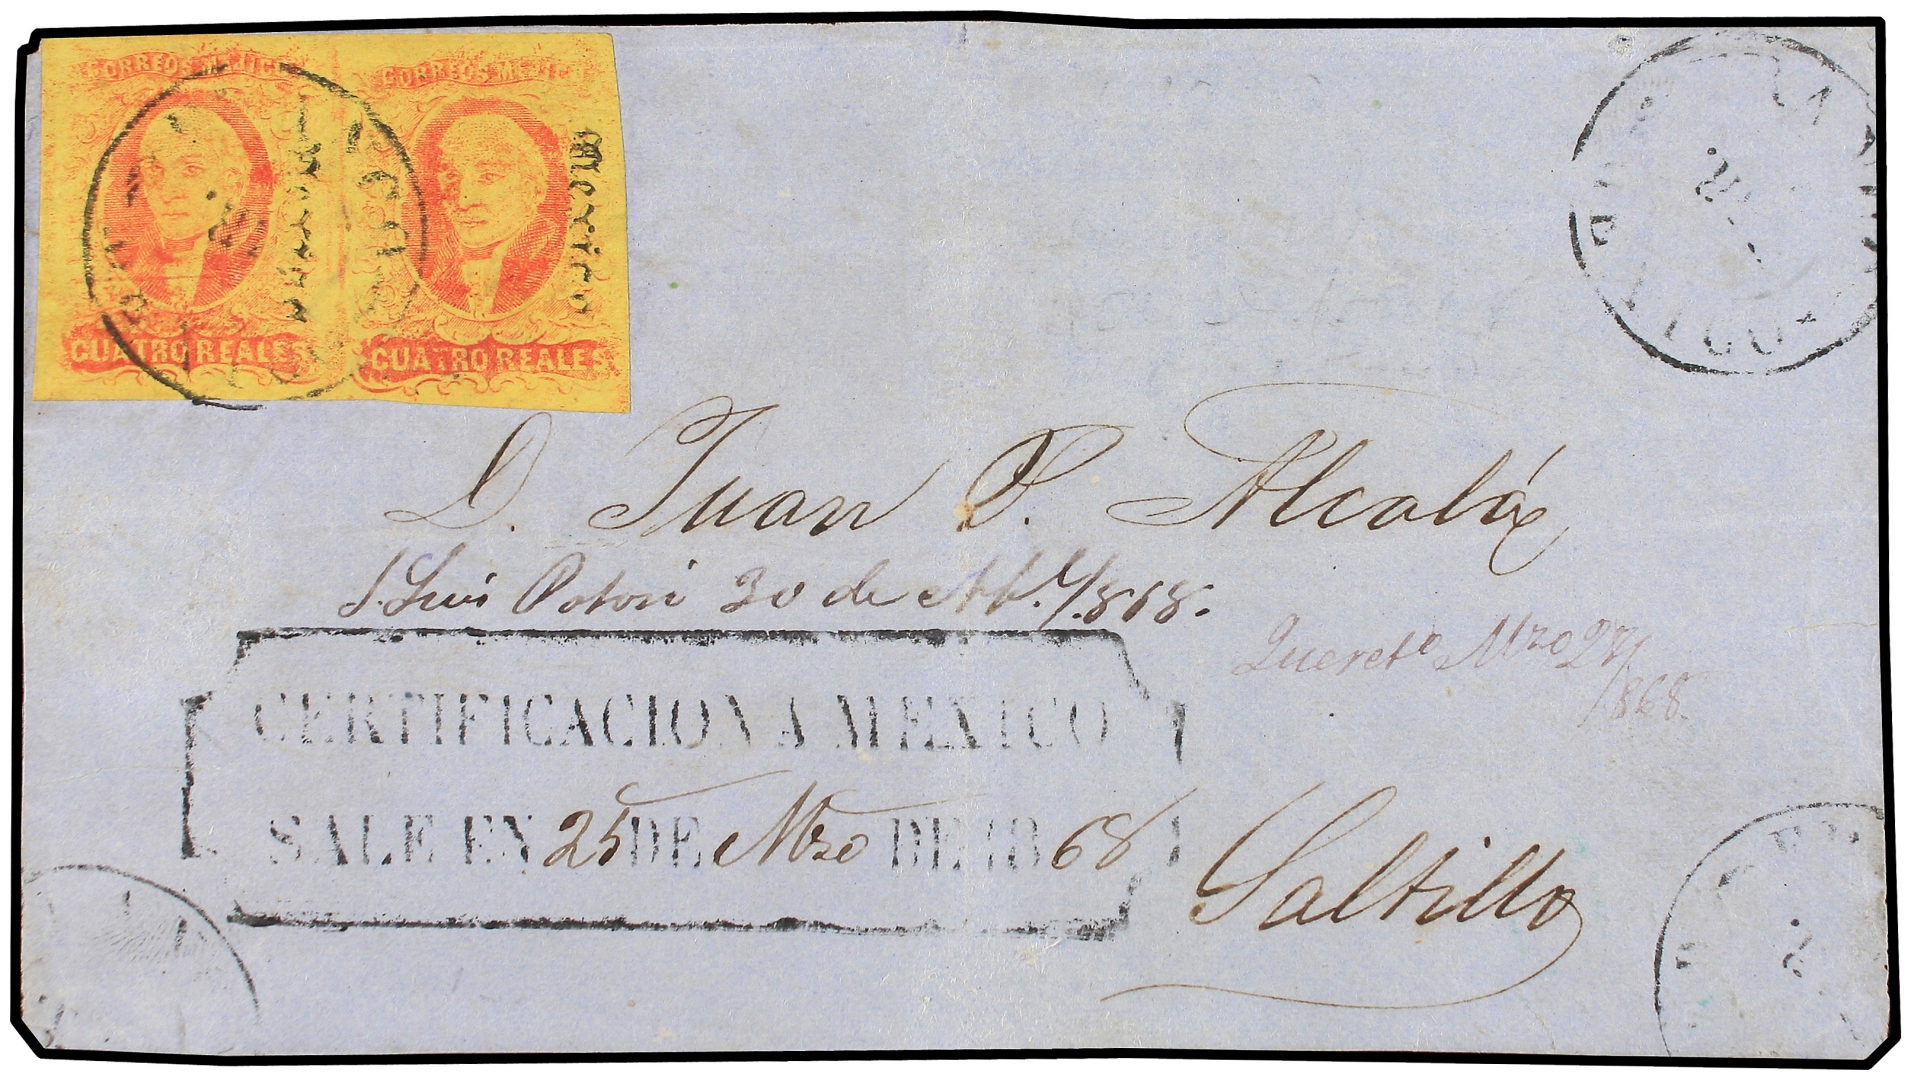 CORREOS MEJICO
CORREOS MEJICO
Mexico
Mexico
CUATRO REALES
CUATRO REALES
D. Juan P. Alcalá
S. Luis Potosi 30 de 1868.
Queret° Mzo 27/
1868.
CERTIFICACION A MEXICO
SALE EN 25 DE Mzo DE 1868
Saltillo